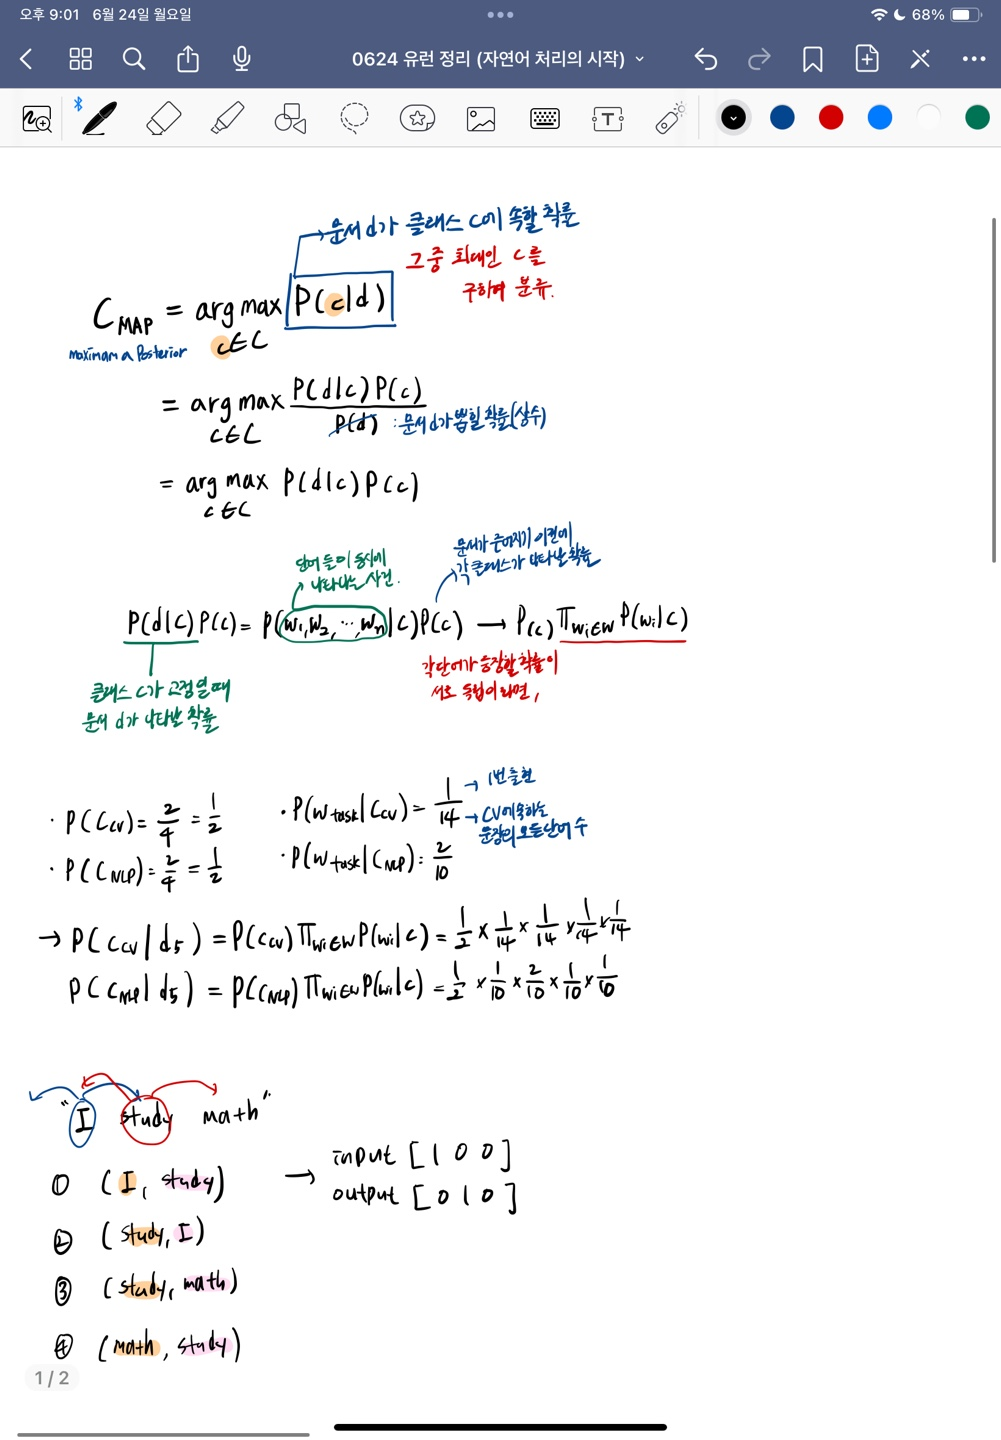 오후 9:01 6월 24일 월요일
68%
0624 유런 정리 (자연어 처리의 시작)
문서 d가 클래스 c에 속할 확률
그 중 최대인 c를
구하여 분류.
C_MAP = arg max P(c|d)
c∈C
maximam a Posterior
= arg max P(d|c) P(c)
c∈C P(d) : 문서 d가 뽑힐 확률(상수)
= arg max P(d|c) P(c)
c∈C
단어 들이 동시에
나타나는 사건.
문서가 주어지기 이전에
각 클래스가 나타날 확률
P(d|c) P(c) = P(w1, w2, ..., wn|c) P(c) → P(c) Π_wi∈W P(wi|c)
각 단어가 등장할 확률이
서로 독립이라면,
클래스 c가 고정일 때
문서 d가 나타날 확률
· P(C_CV) = 2/4 = 1/2
· P(w_task|C_CV) = 1/14
→ 1번 출현
→ CV에 속하는
문장의 모든 단어 수
· P(C_NLP) = 2/4 = 1/2
· P(w_task|C_NLP) = 2/10
→ P(C_CV|d5) = P(C_CV) Π_wi∈W P(wi|c) = 1/2 × 1/14 × 1/14 × 1/14 × 1/14
P(C_NLP|d5) = P(C_NLP) Π_wi∈W P(wi|c) = 1/2 × 1/10 × 2/10 × 1/10 × 1/10
"I study math"
① (I, study) → input [1 0 0]
output [0 1 0]
② (study, I)
③ (study, math)
④ (math, study)
1 / 2